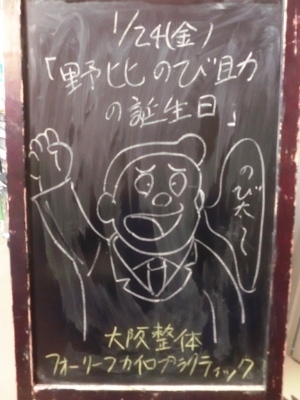 1/24(金)
「野比のび助
の誕生日」
のび太〜
大阪整体
フォーリーフカイロプラクティック